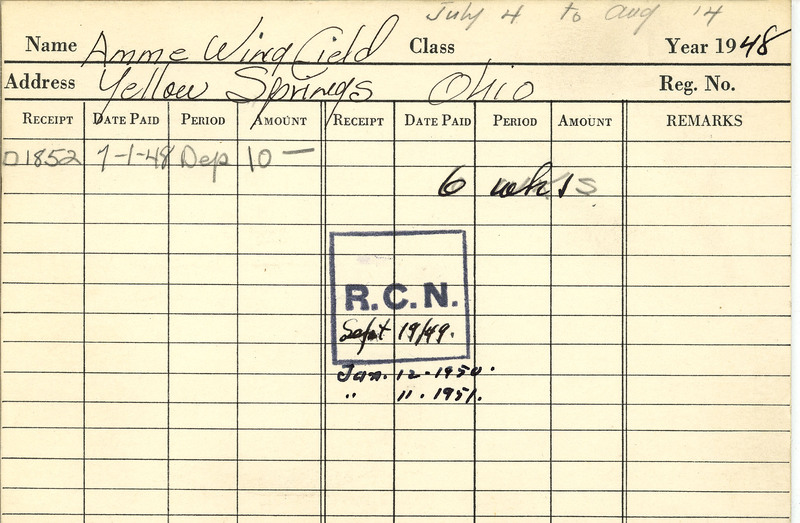 July 4 to Aug 14
Name Anne Wingfield Class Year 1948
Address Yellow Springs Ohio Reg. No.
RECEIPT DATE PAID PERIOD AMOUNT RECEIPT DATE PAID PERIOD AMOUNT REMARKS
D1852 7-1-48 Dep 10 —
6 wks
R.C.N.
Sept 19/49.
Jan. 12-1950.
" 11. 1951.